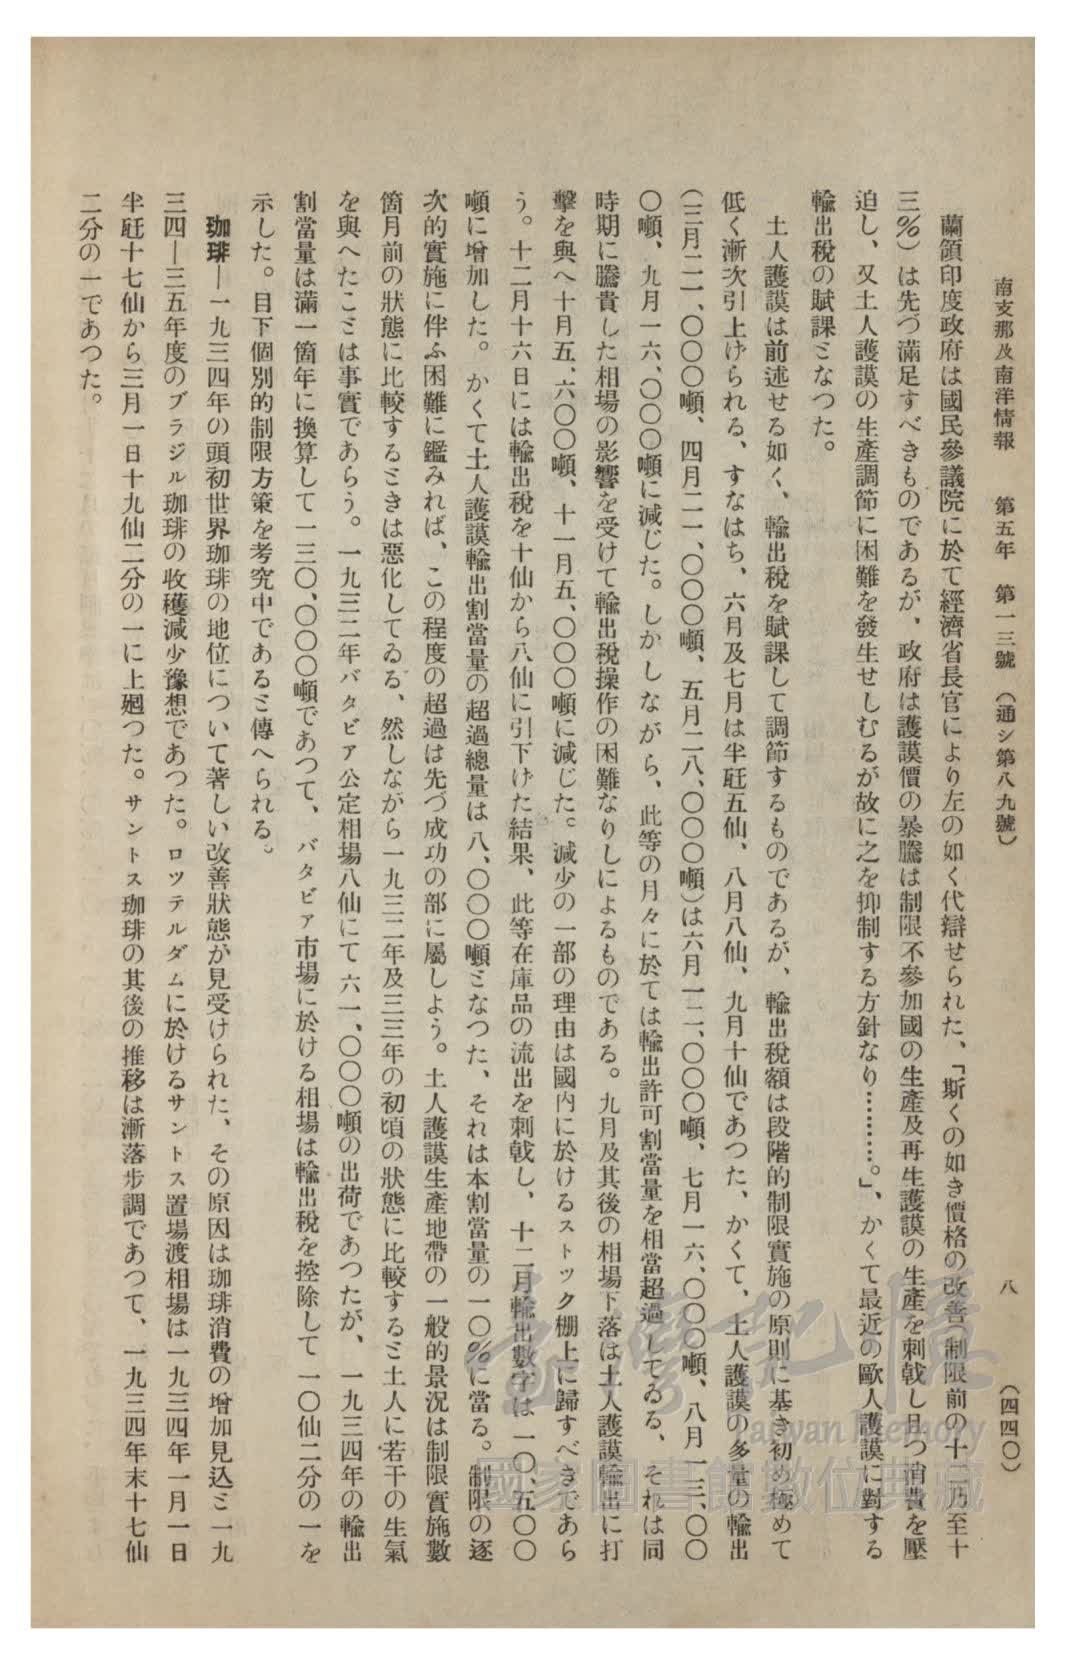 南支那及南洋情報　第五年　第一三號　（通シ第八九號）　八　（四四〇）
蘭領印度政府は國民參議院に於て經濟省長官により左の如く代辯せられた、「斯くの如き價格の改善（制限前の十二乃至十
三%）は先づ滿足すべきものであるが、政府は護謨價の暴騰は制限不參加國の生產及再生護謨の生產を刺戟し且つ消費を壓
迫し、又土人護謨の生產調節に困難を發生せしむるが故に之を抑制する方針なり………。」、かくて最近の歐人護謨に對する
輸出稅の賦課ミなつた。
土人護謨は前述せる如く、輸出稅を賦課して調節するものであるが、輸出稅額は段階的制限實施の原則に基き初め極めて
低く漸次引上げられる、すなはち、六月及七月は半瓩五仙、八月八仙、九月十仙であつた、かくて、土人護謨の多量の輸出
（三月二一、〇〇〇噸、四月二一、〇〇〇噸、五月二八、〇〇〇噸）は六月一二、〇〇〇噸、七月一六、〇〇〇噸、八月一三、〇〇
〇噸、九月一六、〇〇〇噸に減じた。しかしながら、此等の月々に於ては輸出許可割當量を相當超過してゐる、それは同
時期に騰貴した相場の影響を受けて輸出稅操作の困難なりしによるものである。九月及其後の相場下落は土人護謨輸出に打
擊を與へ十月五、六〇〇噸、十一月五、〇〇〇噸に減じた。減少の一部の理由は國內に於けるストック棚上に歸すべきであら
う。十二月十六日には輸出稅を十仙から八仙に引下げた結果、此等在庫品の流出を刺戟し、十二月輸出數字は一〇、五〇〇
噸に增加した。かくて土人護謨輸出割當量の超過總量は八、〇〇〇噸ミなつた、それは本割當量の一〇%に當る。制限の逐
次的實施に伴ふ困難に鑑みれば、この程度の超過は先づ成功の部に屬しよう。土人護謨生產地帶の一般的景況は制限實施數
箇月前の狀態に比較するミきは惡化してゐる、然しながら一九三二年及三三年の初頃の狀態に比較するミ土人に若干の生氣
を與へたこミは事實であらう。一九三二年バタビア公定相場八仙にて六一、〇〇〇噸の出荷であつたが、一九三四年の輸出
割當量は滿一箇年に換算して一三〇、〇〇〇噸であつて、バタビア市場に於ける相場は輸出稅を控除して一〇仙二分の一を
示した。目下個別的制限方策を考究中であるミ傳へられる。
珈琲—一九三四年の頭初世界珈琲の地位について著しい改善狀態が見受けられた、その原因は珈琲消費の增加見込ミ一九
三四—三五年度のブラジル珈琲の收穫減少豫想であつた。ロツテルダムに於けるサントス置場渡相場は一九三四年一月一日
半瓩十七仙から三月一日十九仙二分の一に上廻つた。サントス珈琲の其後の推移は漸落步調であつて、一九三四年末十七仙
二分の一であつた。
臺灣記憶
Taiwan Memory
國家圖書館數位典藏